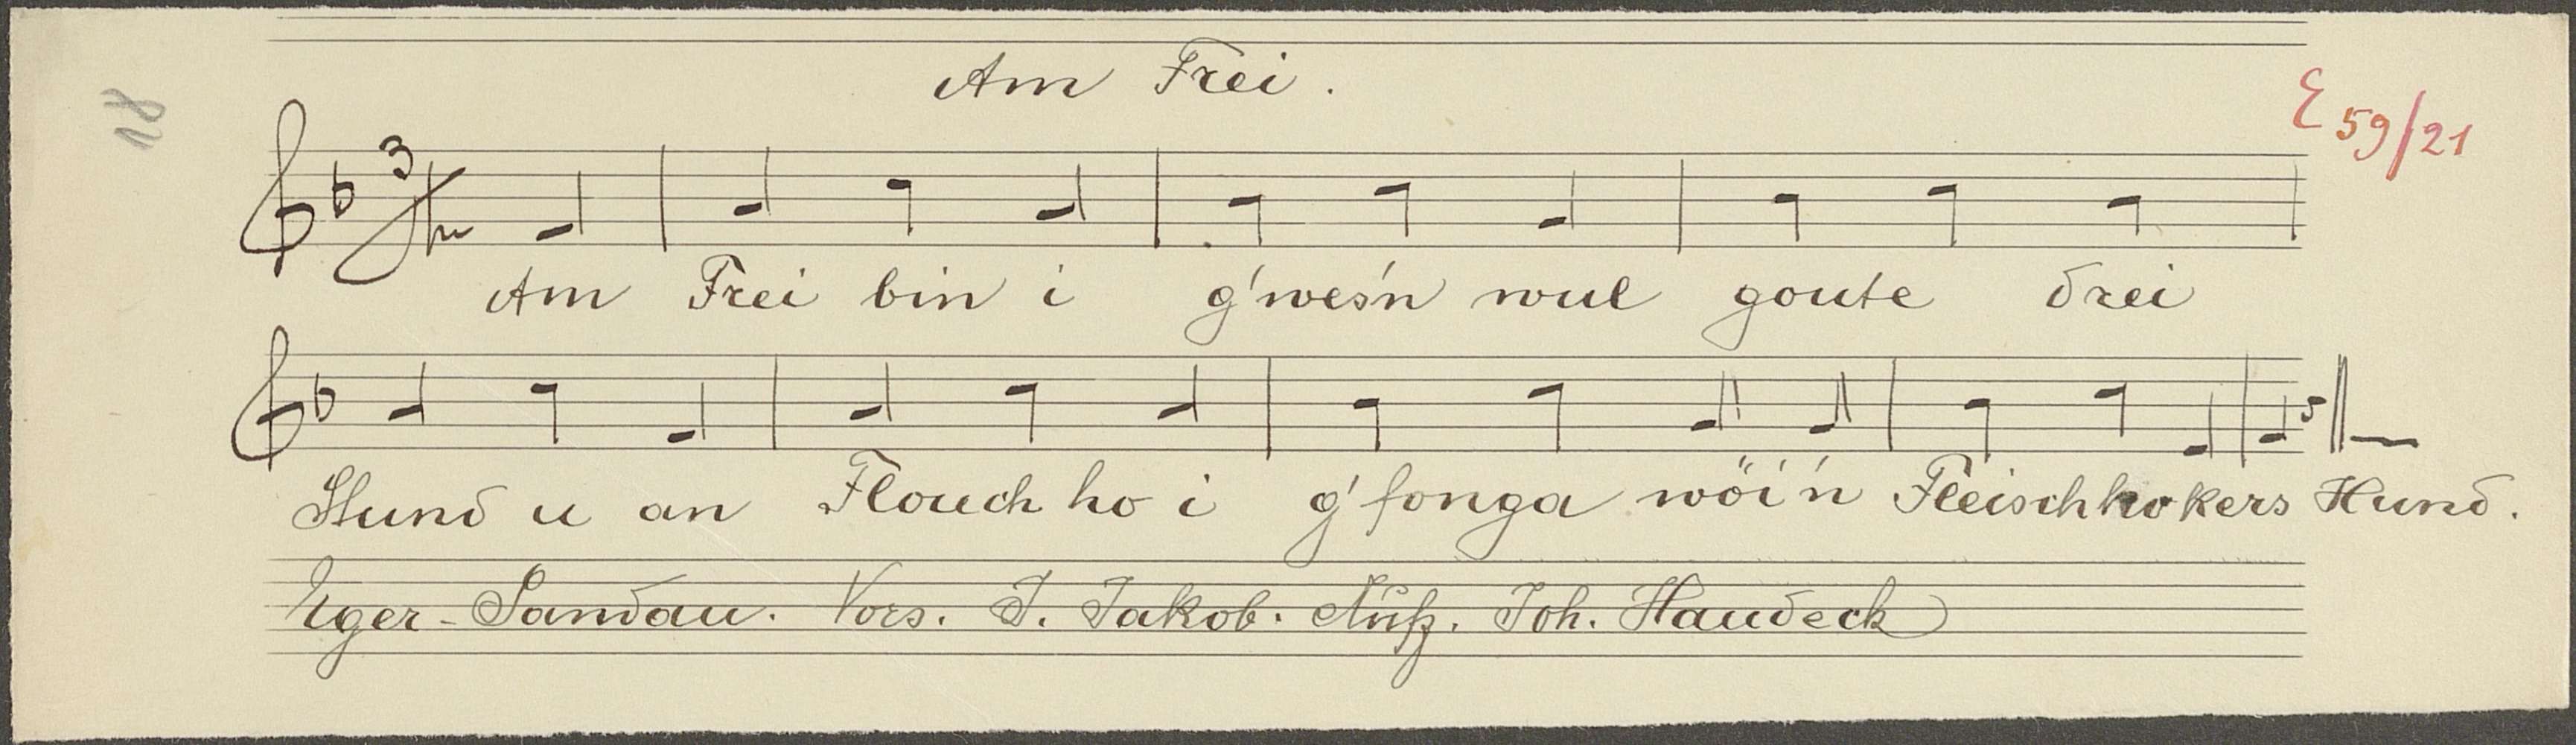 Am Frei.
E 59/21
18
3/4
Am Frei bin i g'wes'n wul goute drei
Stund u an Flouch ho i g'fonga wöi'n Fleischhokers Hund.
Eger-Sandau. Vors. J. Jakob. Aufz. Joh. Haudeck